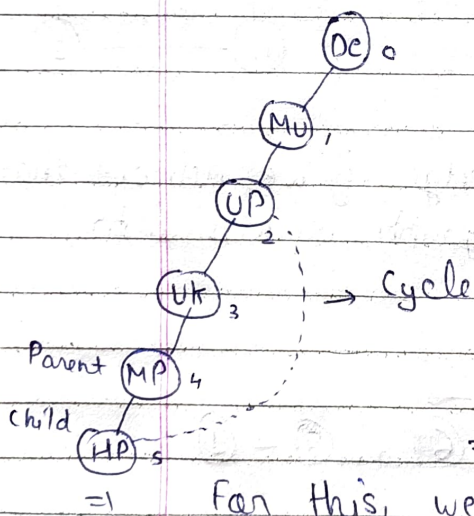 De 0
Mu 1
UP 2
→ Cycle
Uk 3
Parent MP 4
Child HP 5
=1 For this, we